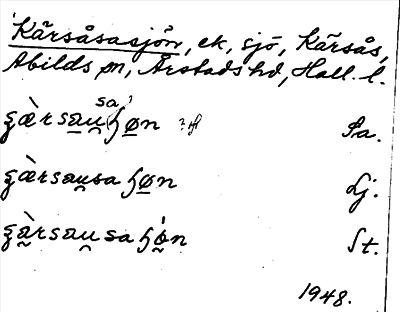 Kärsåsasjön, ek, sjö, Kärsås,
Abilds sn, Årstads hd, Hall. l.
sa
ʒæ̀rsau̯ɧøn Sa.
ʒæ̀rsau̯saɧøn Lj.
ʒæ̀rsau̯saɧøn St.
1948.